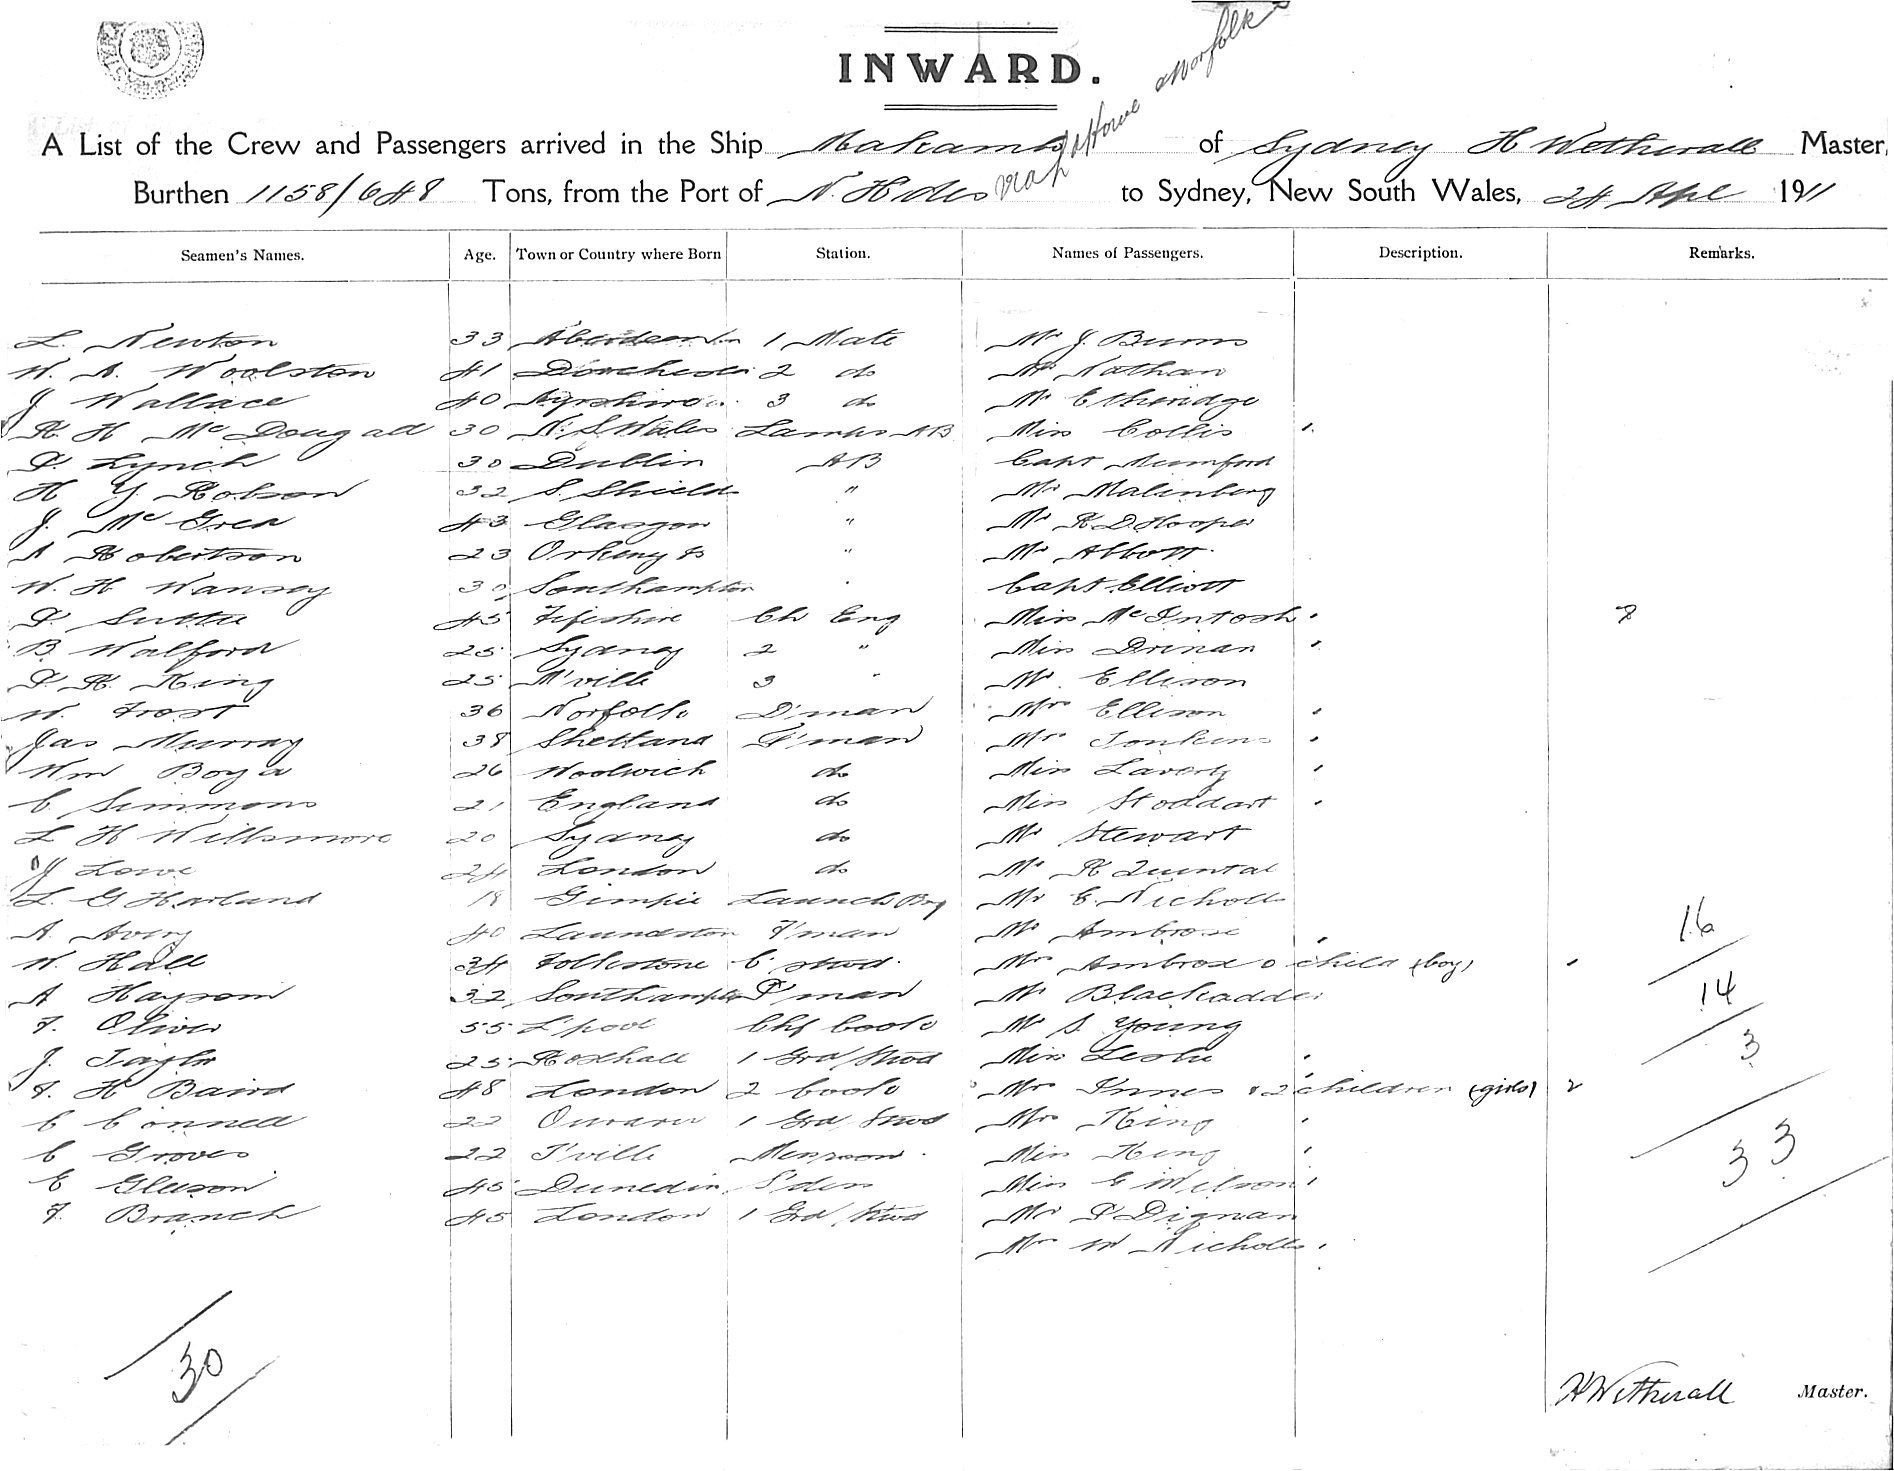 INWARD.
Norfolk
Ld Howe
A List of the Crew and Passengers arrived in the Ship Makambo of Sydney H Wetherall Master,
Burthen 1158/648 Tons, from the Port of N. Hdes via to Sydney, New South Wales, 24 Apl 1911
Seamen's Names. Age. Town or Country where Born Station. Names of Passengers. Description. Remarks.
L. Newton 33 Aberdeen 1 Mate Mr J. Burns
W. A. Woolston 41 Dorchester 2 do Mr Nathan
J Wallace 40 Ayrshire 3 do Mr Etheridge
R. H McDougall 30 N. S. Wales Lamps AB Miss Collis
P. Lynch 30 Dublin AB Capt Mumford
H Y Robson 32 S. Shields " Mr Malinberg
J. McGrea 43 Glasgow " Mr R D. Hooper
A Robertson 23 Orkney Is " Mr Abbott
W. H Wansey 30 Southampton Capt Elliott
P. Suttie 45 Fifeshire Ch Eng Miss McIntosh
B. Walford 25 Sydney 2 " Miss Drinan
P. R. King 25 M'ville 3 " Mr Ellison
W. Frost 36 Norfolk D'man Mrs Ellison
Jas Murray 38 Shetland F'man Mrs Jonkins
Wm Boyd 26 Woolwich do Miss Laverty
C. Simmons 21 England do Miss Stoddart
L H Willsmore 20 Sydney do Mr Stewart
J Lowe 24 London do Mr R Quintal
L. G Harland 18 Gimpie Launch Boy Mr C. Nicholls
A. Avery 40 Launceston F'man Mr Ambrose 16
W. Hall 34 Folkestone C. Stwd. Mrs Ambrose & child (boy)
A Haysom 32 Southampton P'man Mr Blackadder 14
F. Oliver 55 L'pool Chf Cook Mr S. Young
J. Taylor 25 Roxhall 1 Grd Stwd Miss Leslie 3
F. H Baird 48 London 2 Cook Mrs Innes & 2 children (girls) 2
C Connell 22 Oamaru 1 Grd Stwd Mrs King
C Groves 22 T'ville Messroom Miss King 33
E Gleeson 45 Dunedin S'dess Miss E Wilson
F. Branch 45 London 1 Grd Stwd Mr P Dignan
Mrs W Nicholls
30
H Wetherall Master.